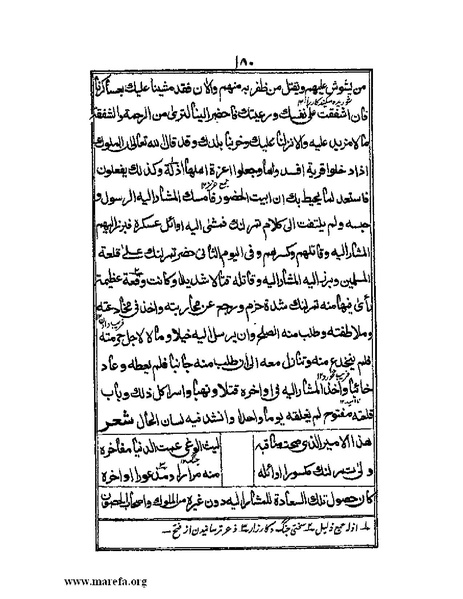 ١٨٠
من يشوش عليهم ويقتل من ظفر به منهم والآن فقد مشينا عليك بعساكرنا
فان اشفقت على نفسك ورعيتك فاحضر الينا لترى من الرحمة والشفقة
مالا مزيد عليه والا نزلنا عليك وخربنا بلدك وقد قال الله تعالى ان الملوك
اذا دخلوا قرية افسدوها وجعلوا اعزة اهلها اذلة وكذلك يفعلون
فاستعد لما يحيط بك ان ابيت الحضور فامسك المشار اليه الرسول و
حبسه ولم يلتفت الى كلام تمرلنك فمشى اليه اوائل عسكره فبرز اليهم
المشار اليه وقاتلهم وكسرهم وفى اليوم الثانى حضر تمرلنك على قلعة
المسلمين وبرز اليه المشار اليه وقاتله قتالا شديدا وكانت وقعة عظيمة
رأى فيها منه تمرلنك شدة حزم ورجع عن محاربته واخذ فى مخادعته
وملاطفته وطلب منه الصلح وان يرسل اليه خيلا ومالا لاجل حرمته
فلم ينخدع منه وتنازل معه الى ان طلب منه جانبا فلم يعطه وعاد
خائبا واخذ المشار اليه فى اواخره قتلا ونهبا واسرا كل ذلك وباب
قلعته مفتوح لم يغلقه يوما واحدا وانشد فيه لسان الحال شعر
هذا الامير الذى صحت مناقبه ليث الوغى عمت الدنيا مفاخره
ولى تمرلنك مكسورا اوائله منه مرارا ومذعورا اواخره
كان حصول تلك السعادة للمشار اليه دون غيره من الملوك واصحاب الحصون
اذلة جمع ذليل سختى جنگ وكارزار ذعر ترسانيدن از فتح
www.marefa.org